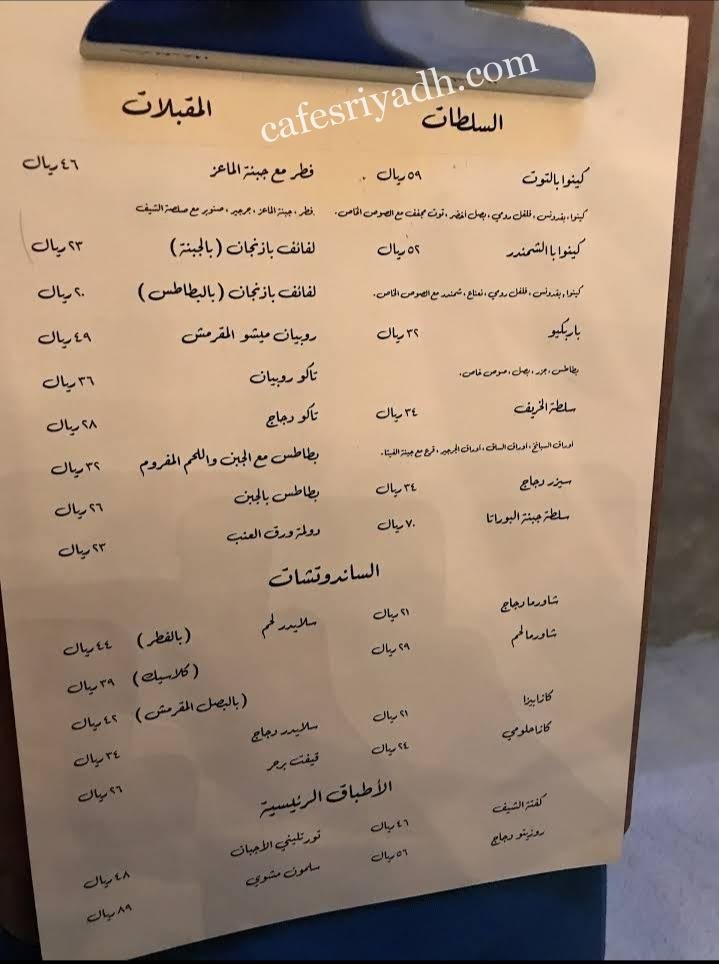 cafesriyadh.com
السلطات
كينوا بالتوت ٥٩ ريال
كينوا، بقدونس، فلفل رومي، بصل اخضر، توت مجفف مع الصوص الخاص.
كينوا بالشمندر ٥٢ ريال
كينوا، بقدونس، فلفل رومي، نعناع، شمندر مع الصوص الخاص.
باربكيو ٣٢ ريال
بطاطس، جزر، بصل، صوص خاص.
سلطة الخريف ٣٤ ريال
اوراق السبانخ، اوراق السلق، اوراق الجرجير، قرع مع جبنة الفيتا.
سيزر دجاج ٣٤ ريال
سلطة جبنة البوراتا ٧٠ ريال
المقبلات
فطر مع جبنة الماعز ٤٦ ريال
فطر، جبنة الماعز، جرجير، صنوبر مع صلصة الشيف
لفائف باذنجان (بالجبنة) ٢٣ ريال
لفائف باذنجان (بالبطاطس) ٢٠ ريال
روبيان ميشو المقرمش ٤٩ ريال
تاكو روبيان ٣٦ ريال
تاكو دجاج ٢٨ ريال
بطاطس مع الجبن واللحم المفروم ٣٢ ريال
بطاطس بالجبن ٢٦ ريال
دولمة ورق العنب ٢٣ ريال
الساندوتشات
شاورما دجاج ٢١ ريال
شاورما لحم ٢٩ ريال
كازابيزا ٢١ ريال
كازا حلومي ٢٤ ريال
سلايدر لحم (بالفطر) ٤٤ ريال
(كلاسيك) ٣٩ ريال
(بالبصل المقرمش) ٤٢ ريال
سلايدر دجاج ٣٤ ريال
قيفت برجر ٢٦ ريال
الأطباق الرئيسية
كفتة الشيف ٤٦ ريال
روزيتو دجاج ٥٦ ريال
تورتليني الأجبان ٤٨ ريال
سلمون مشوي ٨٩ ريال